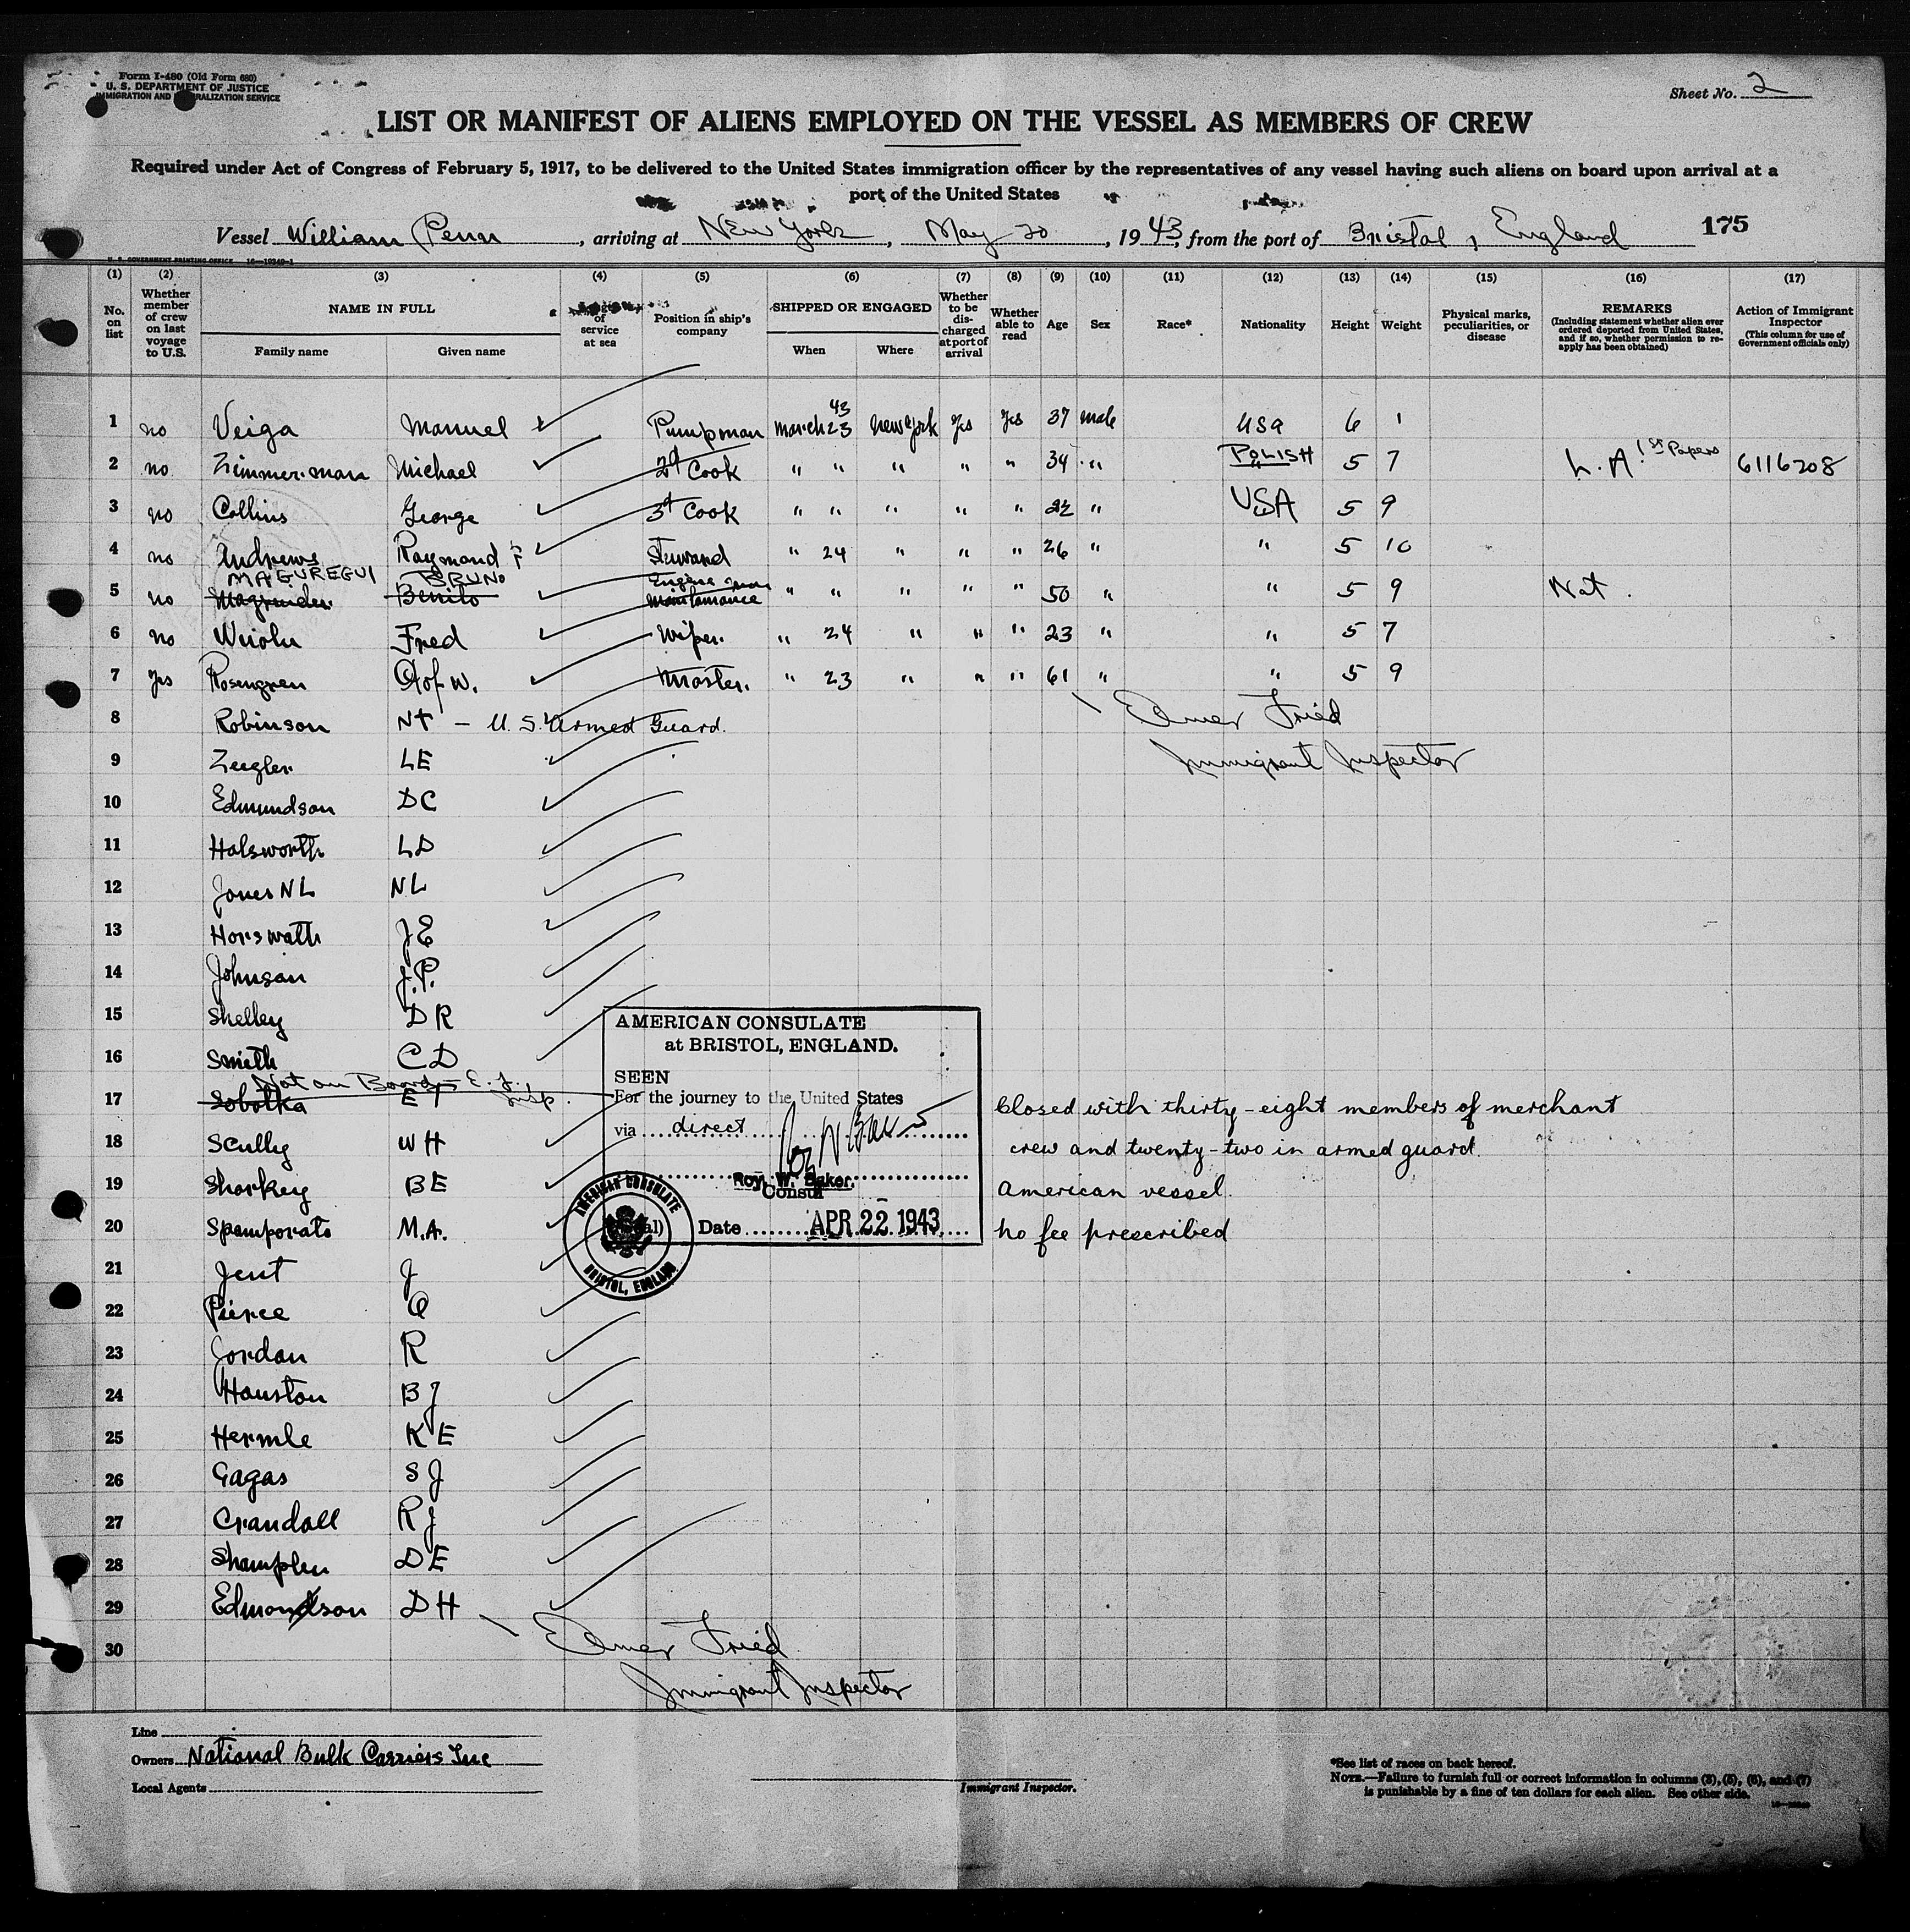 Form I-480 (Old Form 680)
U. S. DEPARTMENT OF JUSTICE
IMMIGRATION AND NATURALIZATION SERVICE
Sheet No. 2
LIST OR MANIFEST OF ALIENS EMPLOYED ON THE VESSEL AS MEMBERS OF CREW
Required under Act of Congress of February 5, 1917, to be delivered to the United States immigration officer by the representatives of any vessel having such aliens on board upon arrival at a
port of the United States
Vessel William Penn, arriving at New York, May 20, 1943, from the port of Bristol, England 175
U. S. GOVERNMENT PRINTING OFFICE 16—19340-1
(1) (2) (3) (4) (5) (6) (7) (8) (9) (10) (11) (12) (13) (14) (15) (16) (17)
No. on list
Whether member of crew on last voyage to U.S.
NAME IN FULL
Family name Given name
of service at sea
Position in ship's company
SHIPPED OR ENGAGED
When Where
Whether to be discharged at port of arrival
Whether able to read
Age
Sex
Race*
Nationality
Height
Weight
Physical marks, peculiarities, or disease
REMARKS
(Including statement whether alien ever ordered deported from United States, and if so, whether permission to reapply has been obtained)
Action of Immigrant Inspector
(This column for use of Government officials only)
1 no Veiga Manuel Pumpman March 23 43 New York Yes Yes 37 male USA 6 1
2 no Zimmerman Michael 2d Cook " " " " " 34 " POLISH 5 7 L. A. 1st Papers 6116208
3 no Collins George 3d Cook " " " " " 22 " USA 5 9
4 no Andrews Raymond F Steward " 24 " " " 26 " " 5 10
MAGUREGUI BRUNO Engine
5 no Benito maintanance " " " " " 50 " " 5 9 Nat.
6 no Fred Wiper " 24 " " " 23 " " 5 7
7 Yes Rosengren Olof W. Master. " 23 " " " 61 " " 5 9
8 Robinson NT - U.S. Armed Guard.
Elmer Fried
Immigrant Inspector
9 Zeegler LE
10 Edmundson DC
11 Halsworth LD
12 Jones NL NL
13 Horswath JE
14 Johnson J.P.
15 Shelley DR
16 Smith CD
Not on Board - E. F., Insp.
17 Sobolka ET
18 Scully WH
19 Sharkey BE
20 Spamporato M.A.
21 Jent J
22 Peirce O
23 Jordan R
24 Houston BJ
25 Hermle KE
26 Gagas SJ
27 Crandall RJ
28 Shamplen DE
29 Edmondson DH
30
Elmer Fried
Immigrant Inspector
AMERICAN CONSULATE
at BRISTOL, ENGLAND.
SEEN
For the journey to the United States
via direct
Roy W. Baker
Roy W. Baker.
Consul
(Seal) Date APR 22 1943
AMERICAN CONSULATE
BRISTOL, ENGLAND
Closed with thirty-eight members of merchant
crew and twenty-two in armed guard.
American vessel.
No fee prescribed
Line
Owners National Bulk Carriers Inc
Local Agents
Immigrant Inspector.
*See list of races on back hereof.
NOTE.—Failure to furnish full or correct information in columns (3), (5), (6), and (7)
is punishable by a fine of ten dollars for each alien. See other side.